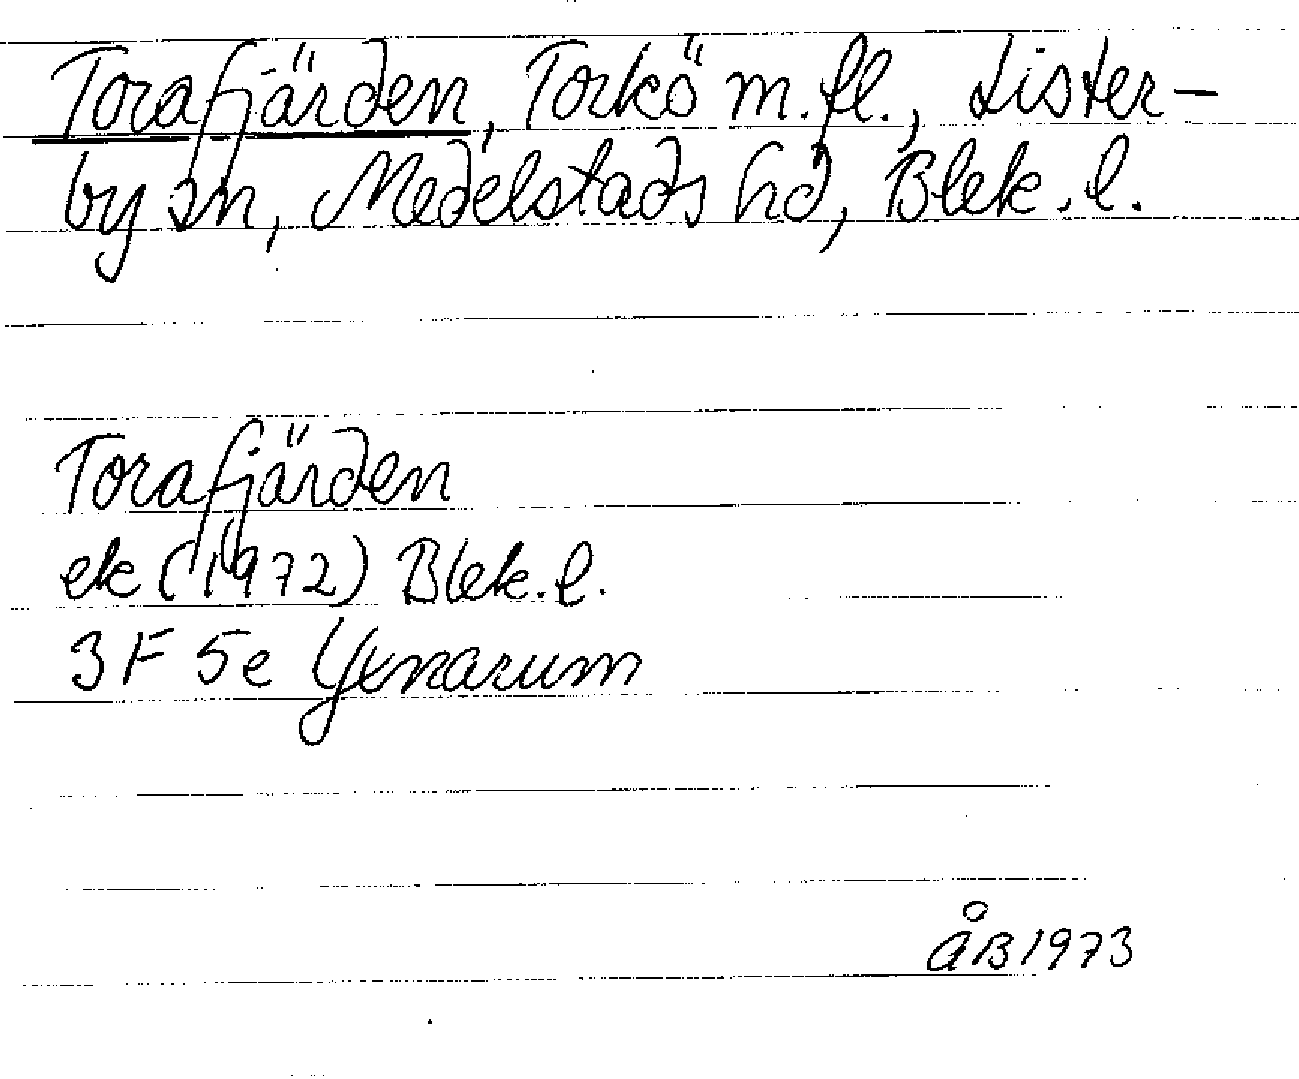 Torafjärden, Torkö m.fl., Lister-
by sn, Medelstads hd, Blek. l.
Torafjärden
ek (1972) Blek. l.
3 F 5e Yxnarum
ÅB 1973